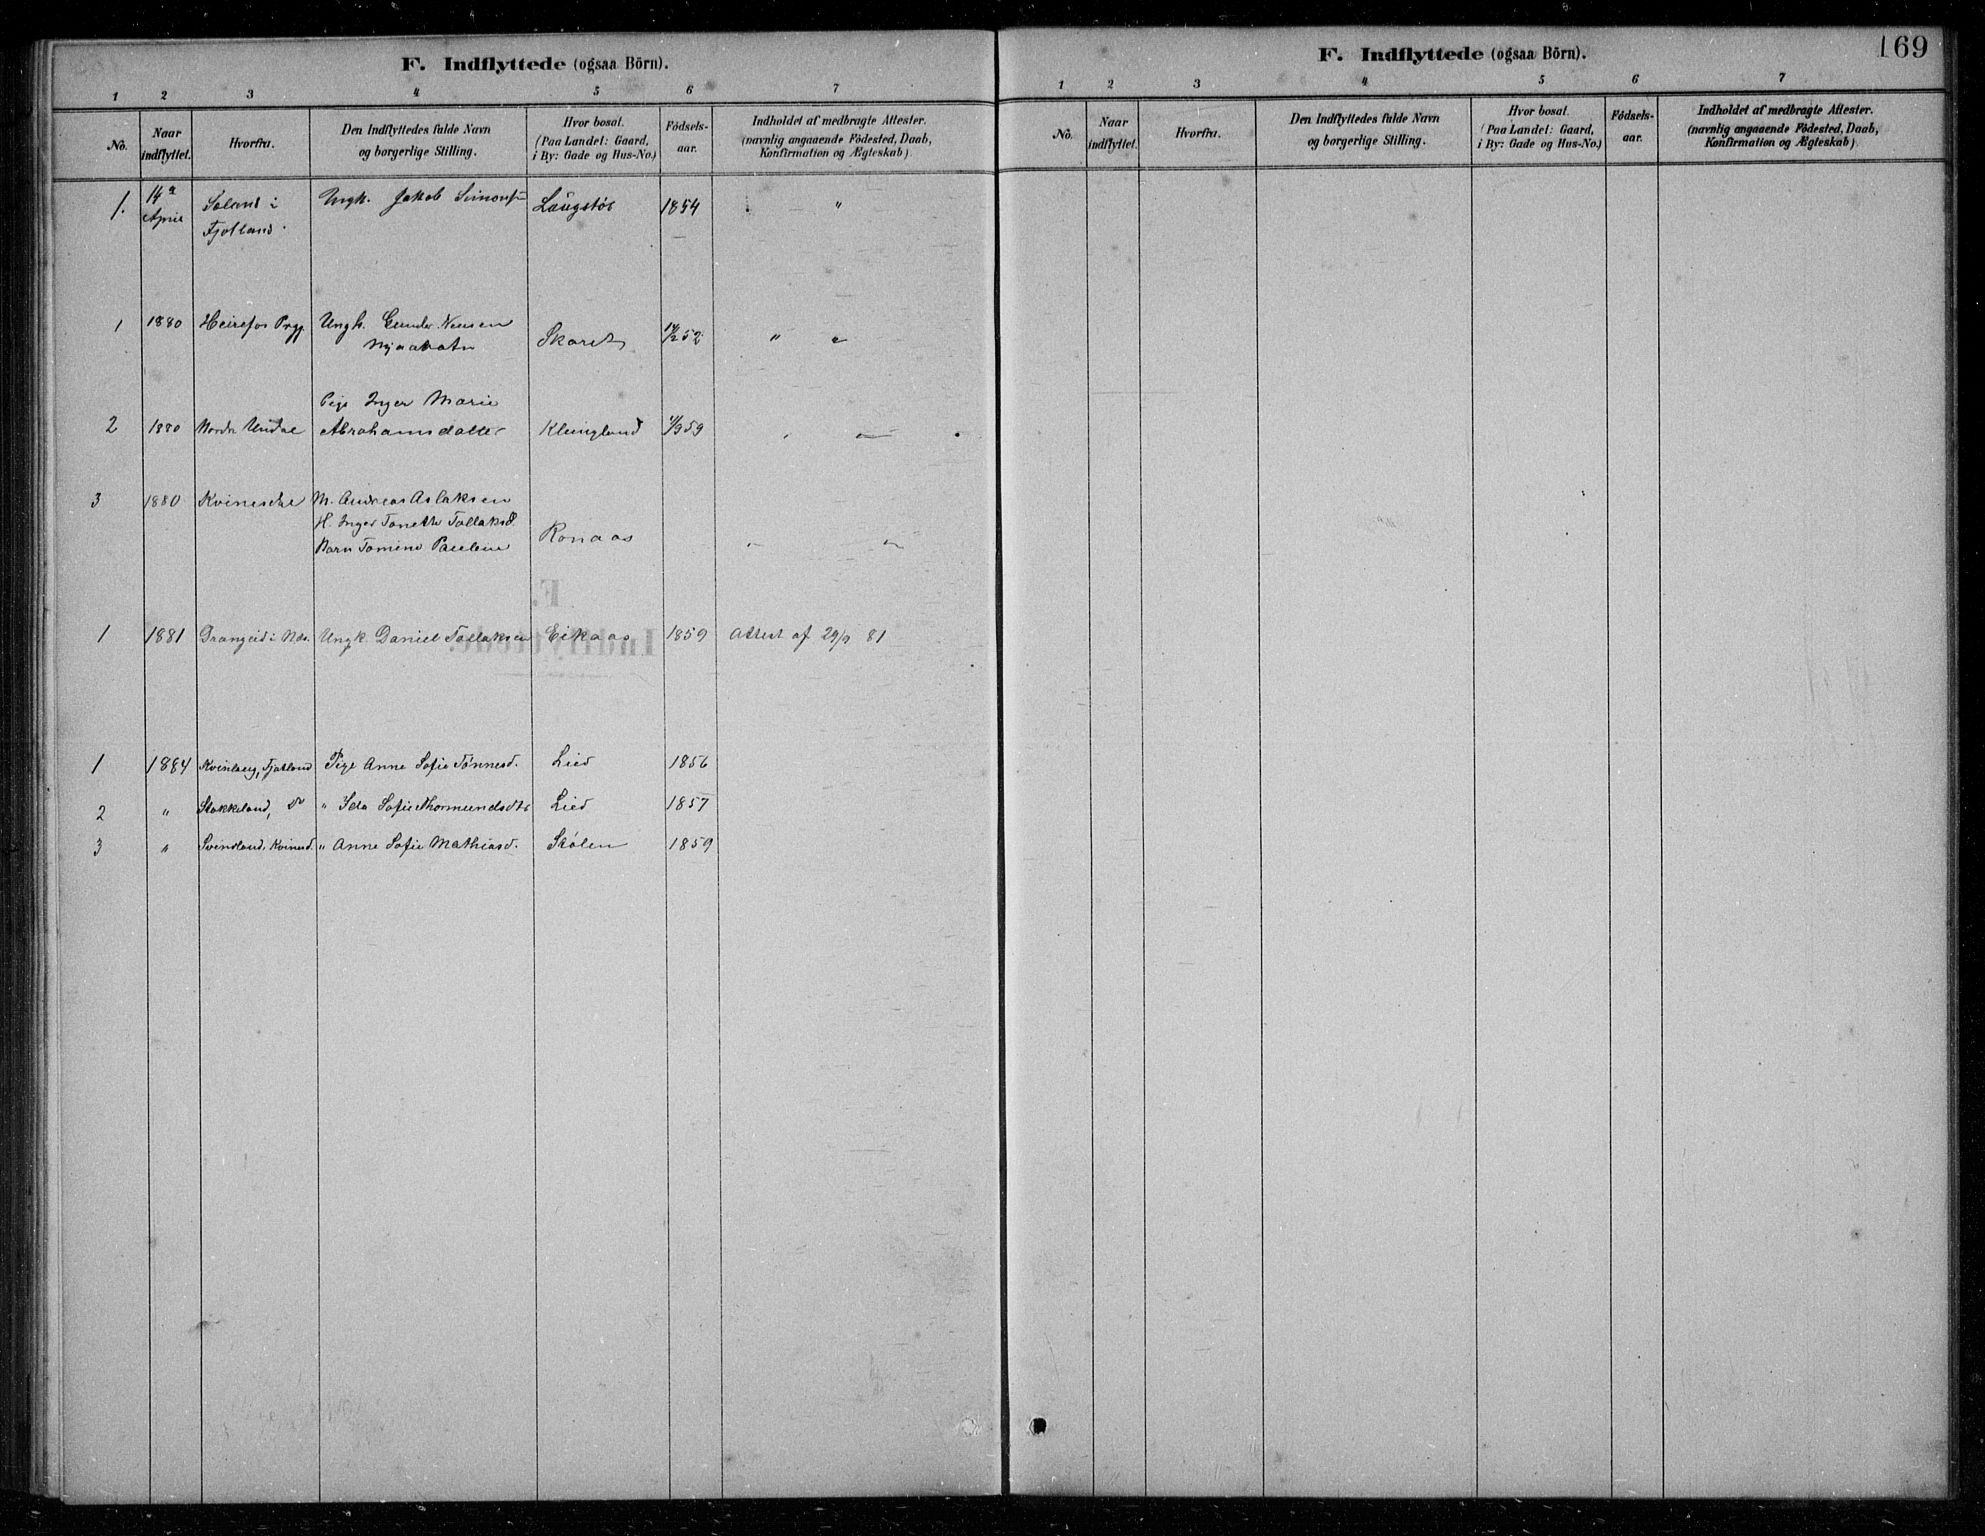 F. Indflyttede (ogsaa Börn).
1 2 3 4 5 6 7
No. Naar indflyttet. Hvorfra. Den Indflyttedes fulde Navn og borgerlige Stilling. Hvor bosat. (Paa Landet: Gaard, i By: Gade og Hus-No.) Födsels-aar. Indholdet af medbragte Attester. (navnlig angaaende Födested, Daab, Konfirmation og Ægteskab).
1. 14 April Soland i Ungk. Jakob Simons Laugstøl 1854 "
Fjotland.
1 1880 Heirefos Prgj. Ungk. Gunder Skaret 14/2 52 " "
2 1880 Nordr Undal Pige Inger Marie
Abrahamsdatter Klungland 4/9 59 " "
3 1880 Kvinesdal M. Andreas Aslaksen
H. Inger Tonette Tollaksd.
Barn Tomine Pauline Ronaas " "
1 1881 Drangeid i Nds. Ungk. Daniel Tollaksen Eikaas 1859 Attest af 29/9 81
1 1884 Kvinlaug, Fjotland Pige Anne Sofie Tönnesd. Lied 1856
2 " Stakkeland, do " Ida Sofie Thormundsdtr Lied 1857
3 " Svindland, Kvinesd. " Anne Sofie Mathiasd. Stølen 1859
F. Indflyttede (ogsaa Börn). 169
1 2 3 4 5 6 7
No. Naar indflyttet. Hvorfra. Den Indflyttedes fulde Navn og borgerlige Stilling. Hvor bosat. (Paa Landet: Gaard, i By: Gade og Hus-No.) Födsels-aar. Indholdet af medbragte Attester. (navnlig angaaende Födested, Daab, Konfirmation og Ægteskab).